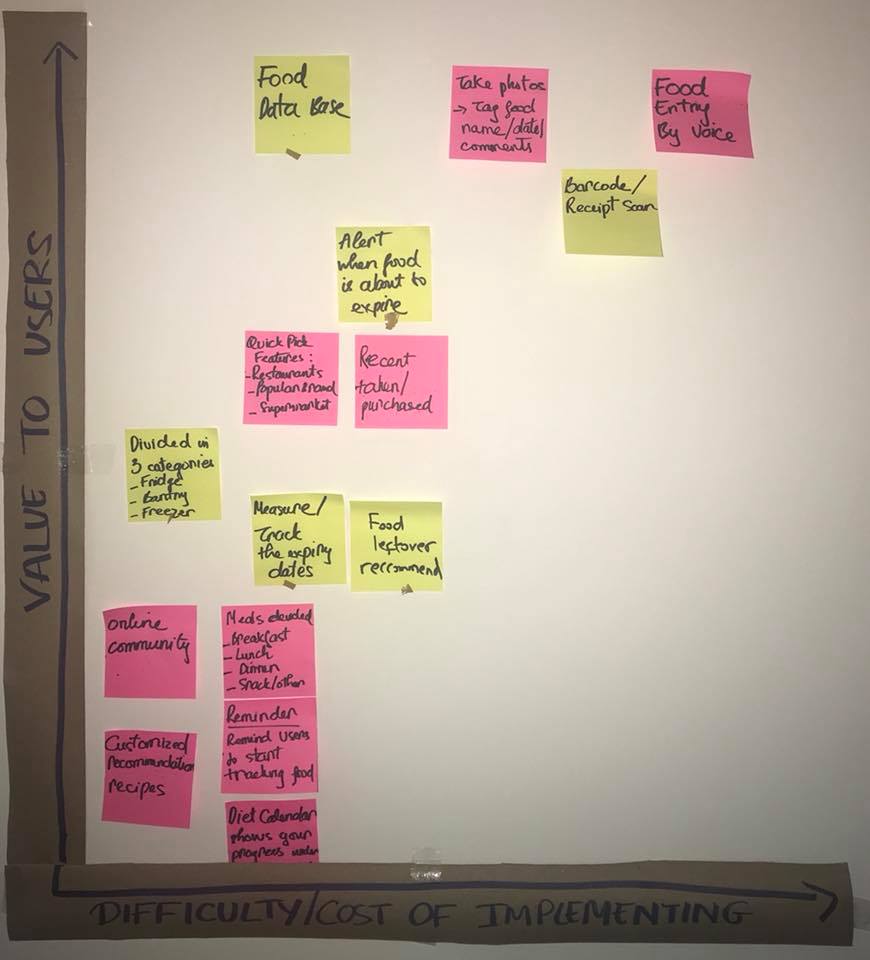 VALUE TO USERS
Food
Data Base
Take photos
→ Tag food
name/date/
comments
Food
Entry
By Voice
Barcode/
Receipt Scan
Alert
when food
is about to
expire
Quick Pick
Features:
- Restaurants
- Popular Brand
- Supermarket
Recent
taken/
purchased
Divided in
3 categories
- Fridge
- Pantry
- Freezer
Measure/
Track
the expiry
dates
Food
leftover
recommend
Online
community
Meals divided
- Breakfast
- Lunch
- Dinner
- Snack/other
Reminder
Remind users
to start
tracking food
Customized
recommendation
recipes
Diet Calendar
shows your
progress
DIFFICULTY/COST OF IMPLEMENTING